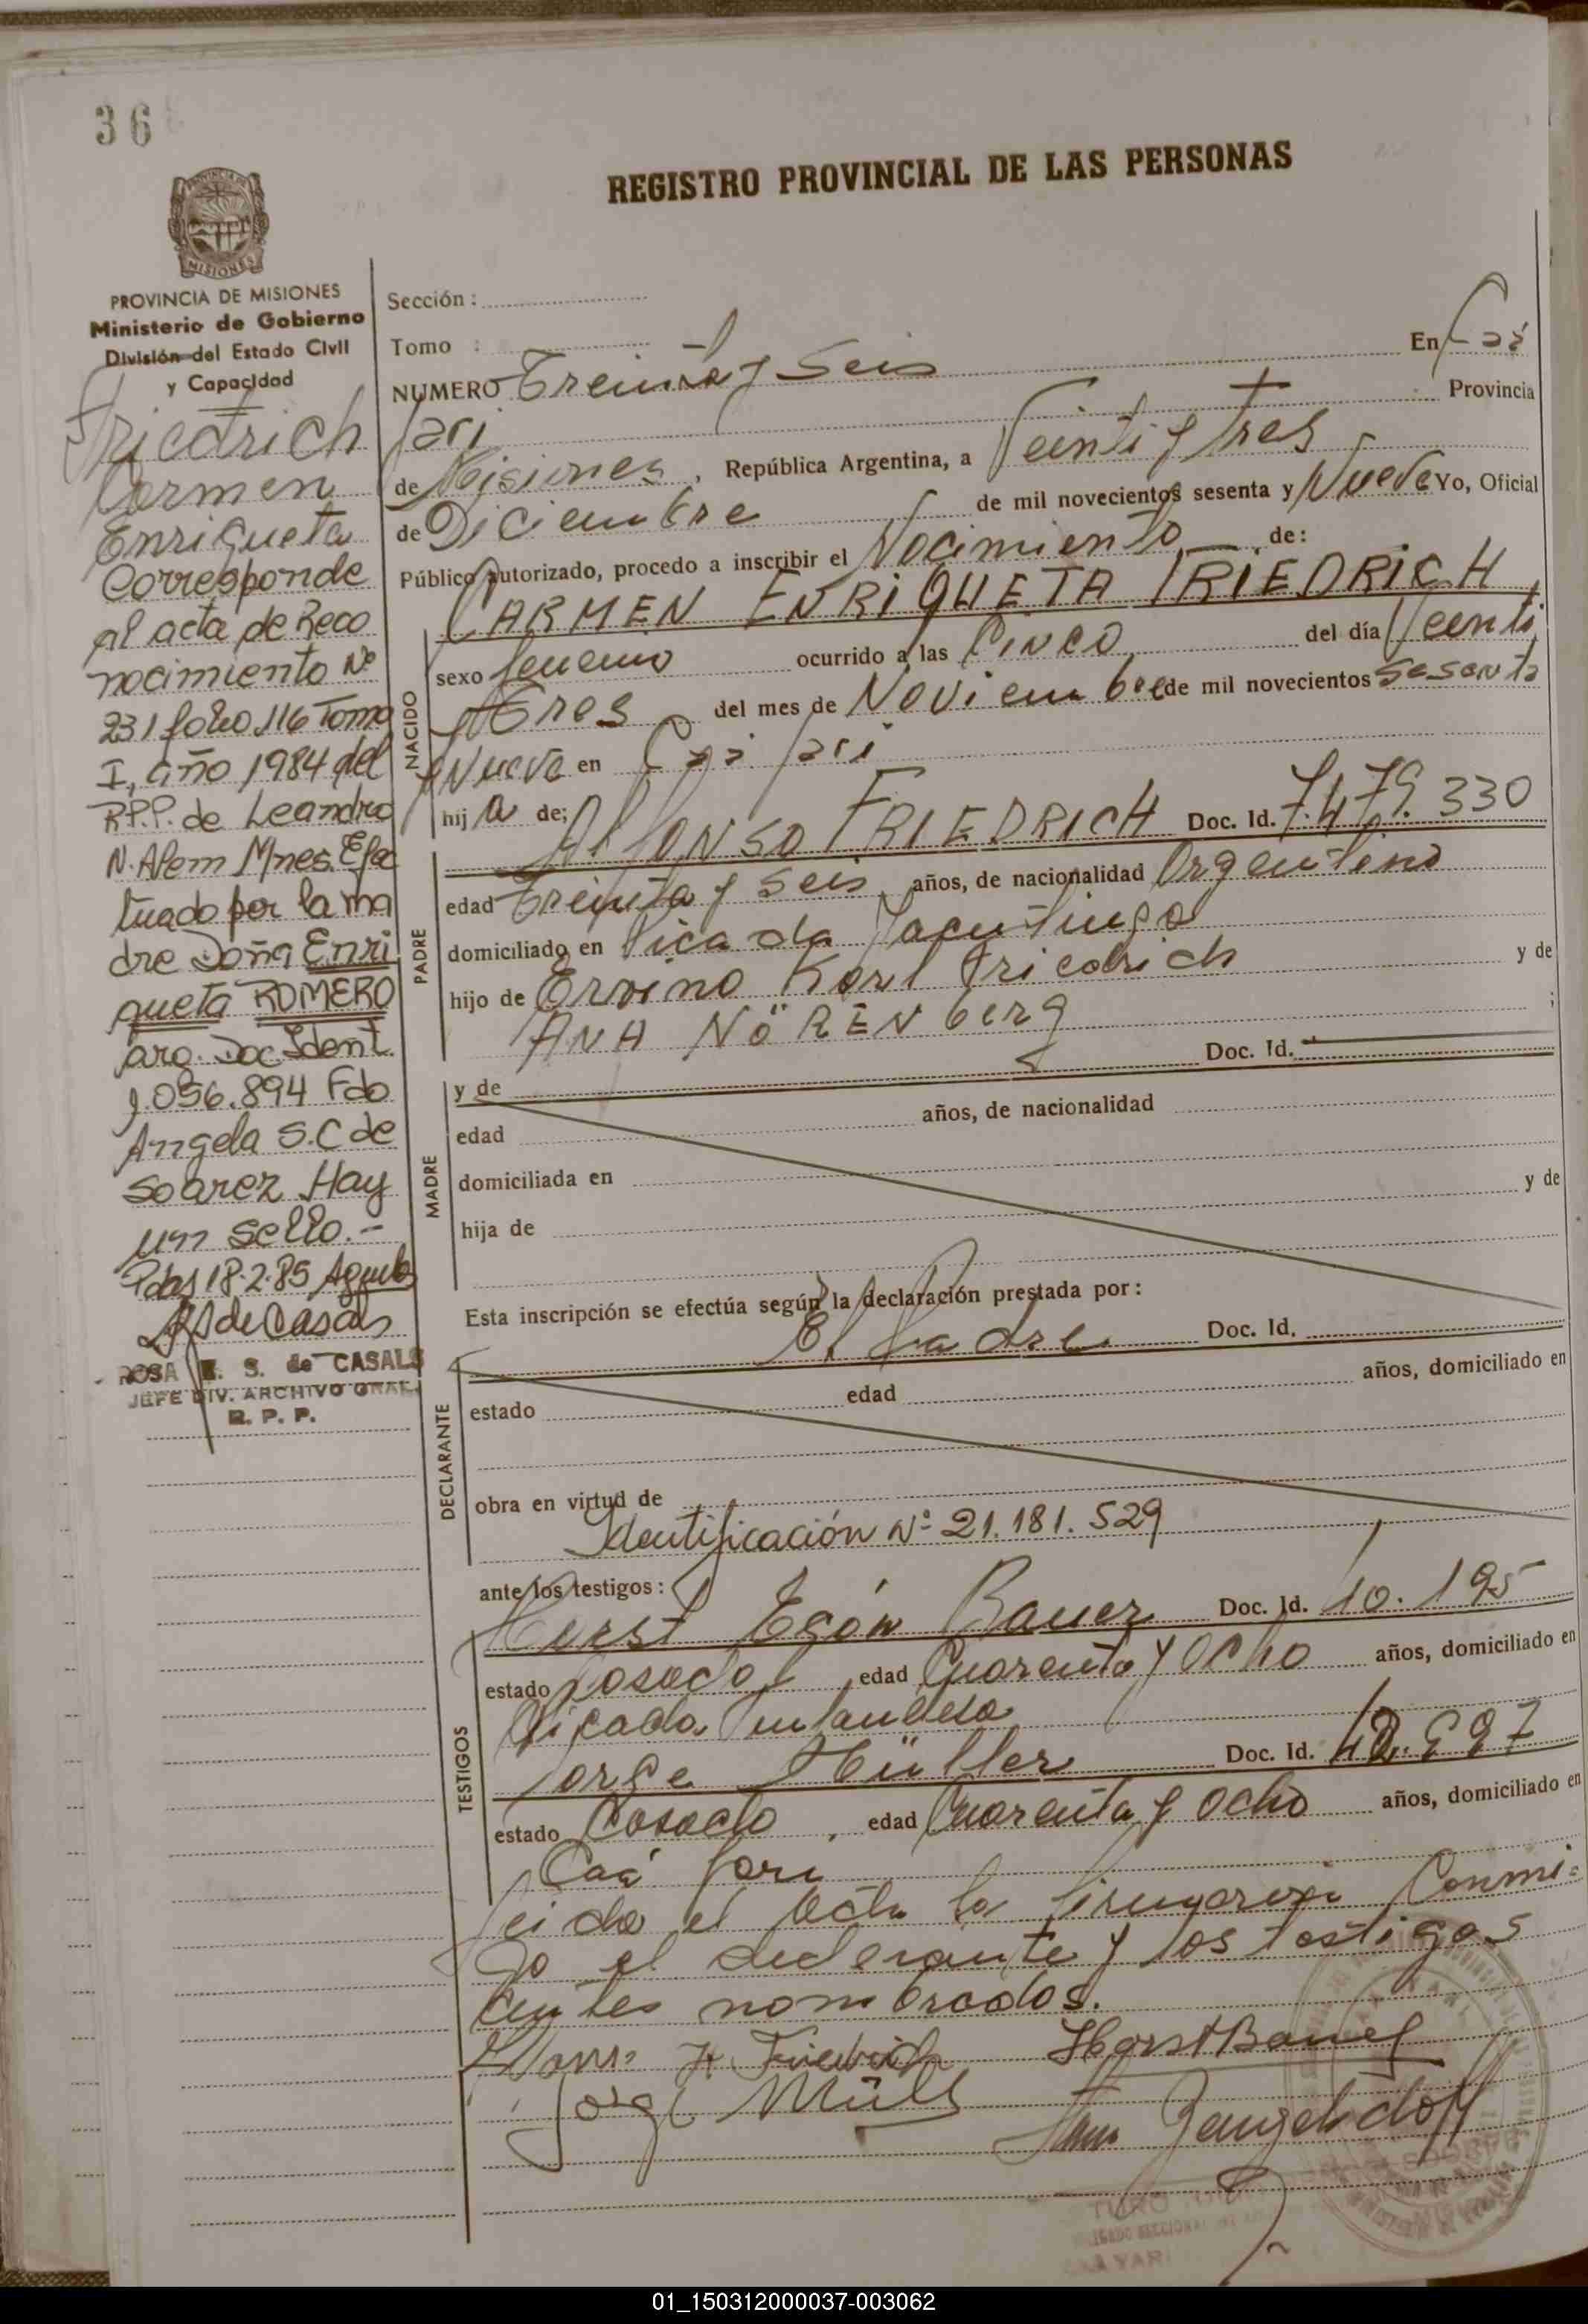 36
REGISTRO PROVINCIAL DE LAS PERSONAS
PROVINCIA DE MISIONES
MISIONES
PROVINCIA DE MISIONES
Ministerio de Gobierno
División del Estado Civil
y Capacidad
Friedrich
Carmen
Enriqueta
Corresponde
al acta de Reco
nocimiento Nº
231 folio 116 Tomo
I, año 1984 del
R.P.P. de Leandro
N. Alem Mnes. Efec
tuado por la ma
dre Doña Enri
queta ROMERO
arg. Doc. Ident.
9.056.894 Fdo
Angela S.C de
Soarez Hay
un sello.-
Pdas 18.2.85
de Casals
ROSA E. S. de CASALS
JEFE DIV. ARCHIVO GRAL.
R. P. P.
Sección :
Tomo :
NUMERO Treinta y Seis En Caá
Yari Provincia
de Misiones, República Argentina, a Veinti y tres
de Diciembre de mil novecientos sesenta y Nueve Yo, Oficial
Público autorizado, procedo a inscribir el Nacimiento de:
CARMEN ENRiQUETA FRiEDRICH
NACIDO
sexo femenino ocurrido a las Cinco del día Veenti
y Tres del mes de Noviembre de mil novecientos Sesenta
y Nueve en Caá Yari
hij a de;
PADRE
Alfonso FRIEDRICH Doc. Id. 7.479.330
edad Treinta y Seis años, de nacionalidad Argentino
domiciliado en Picada Yacutinga
hijo de Ervino Karl Friedrich y de
ANA NÖRENberg ;
MADRE
y de Doc. Id.
edad años, de nacionalidad
domiciliada en
hija de y de
Esta inscripción se efectúa según la declaración prestada por:
DECLARANTE
El Padre Doc. Id.
estado edad años, domiciliado en
obra en virtud de
Identificación Nº 21.181.529
ante los testigos:
TESTIGOS
Horst Egón Bauer Doc. Id. 10.195
estado Casado, edad Cuarenta y Ocho años, domiciliado en
Picada Finlandesa
Jorge Müller Doc. Id.
estado Casado, edad Cuarenta y Ocho años, domiciliado en
Caá Yari
Leida el Acta la firmaron Conmi-
go el declarante y los testigos
antes nombrados.
Friedrich Horst Bauer
Jorge Müll
01_150312000037-003062